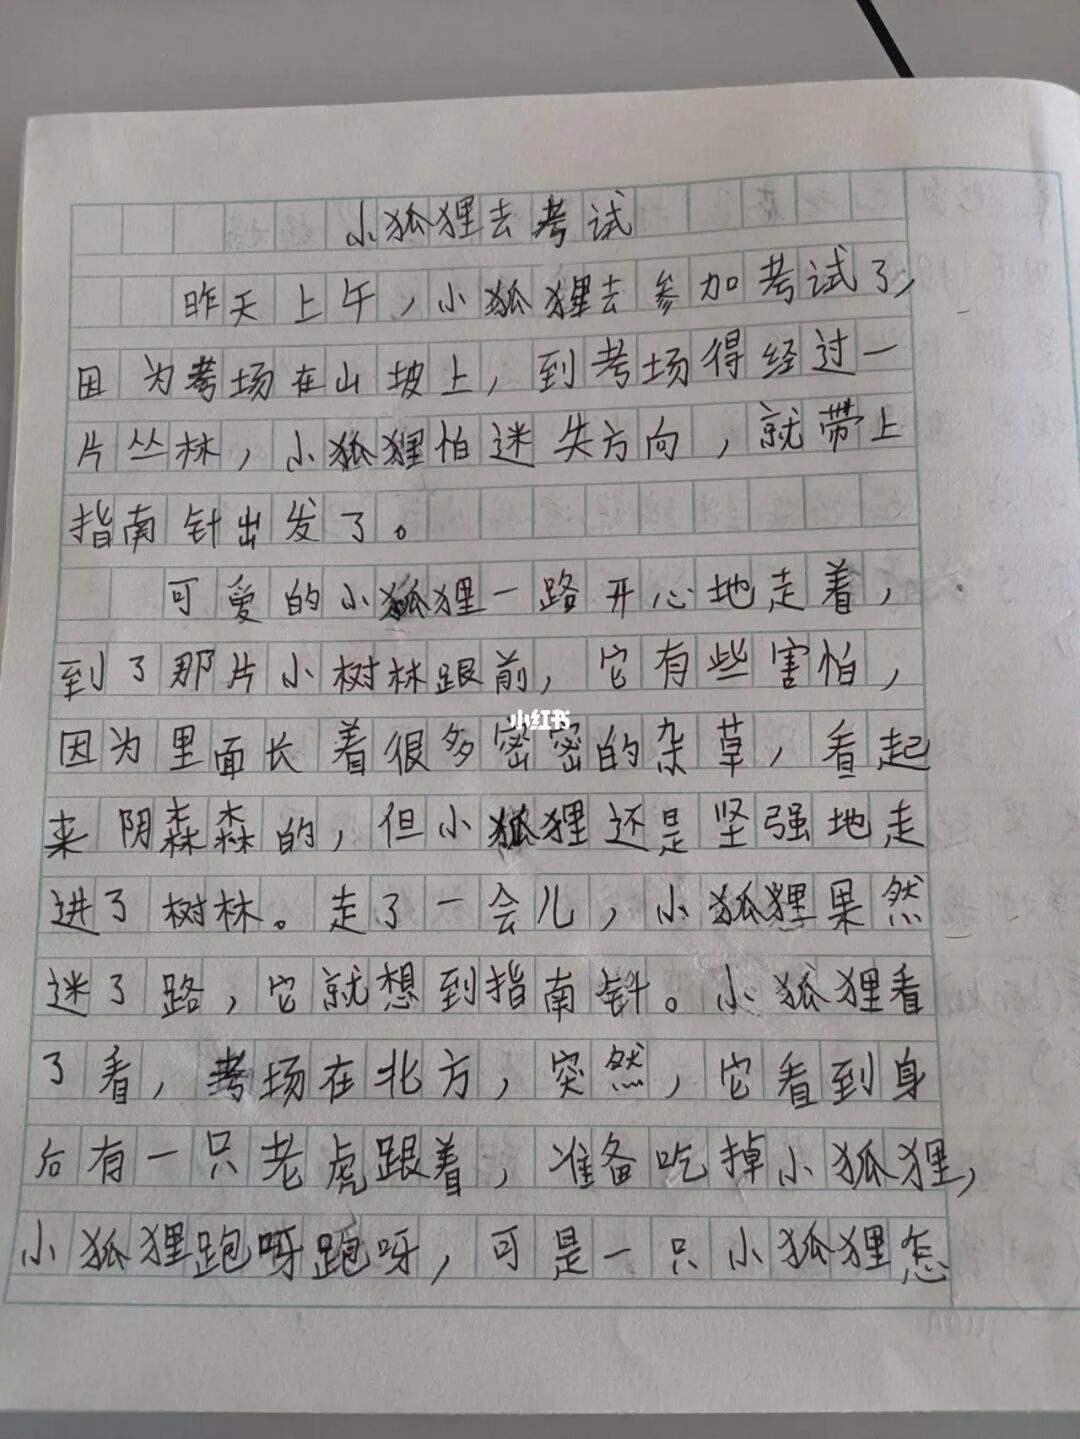 小狐狸去考试
昨天上午，小狐狸去参加考试了，
因为考场在山坡上，到考场得经过一
片丛林，小狐狸怕迷失方向，就带上
指南针出发了。
可爱的小狐狸一路开心地走着，
到了那片小树林跟前，它有些害怕，
小红书
因为里面长着很多密密的杂草，看起
来阴森森的，但小狐狸还是坚强地走
进了树林。走了一会儿，小狐狸果然
迷了路，它就想到指南针。小狐狸看
了看，考场在北方，突然，它看到身
后有一只老虎跟着，准备吃掉小狐狸，
小狐狸跑呀跑呀，可是一只小狐狸怎